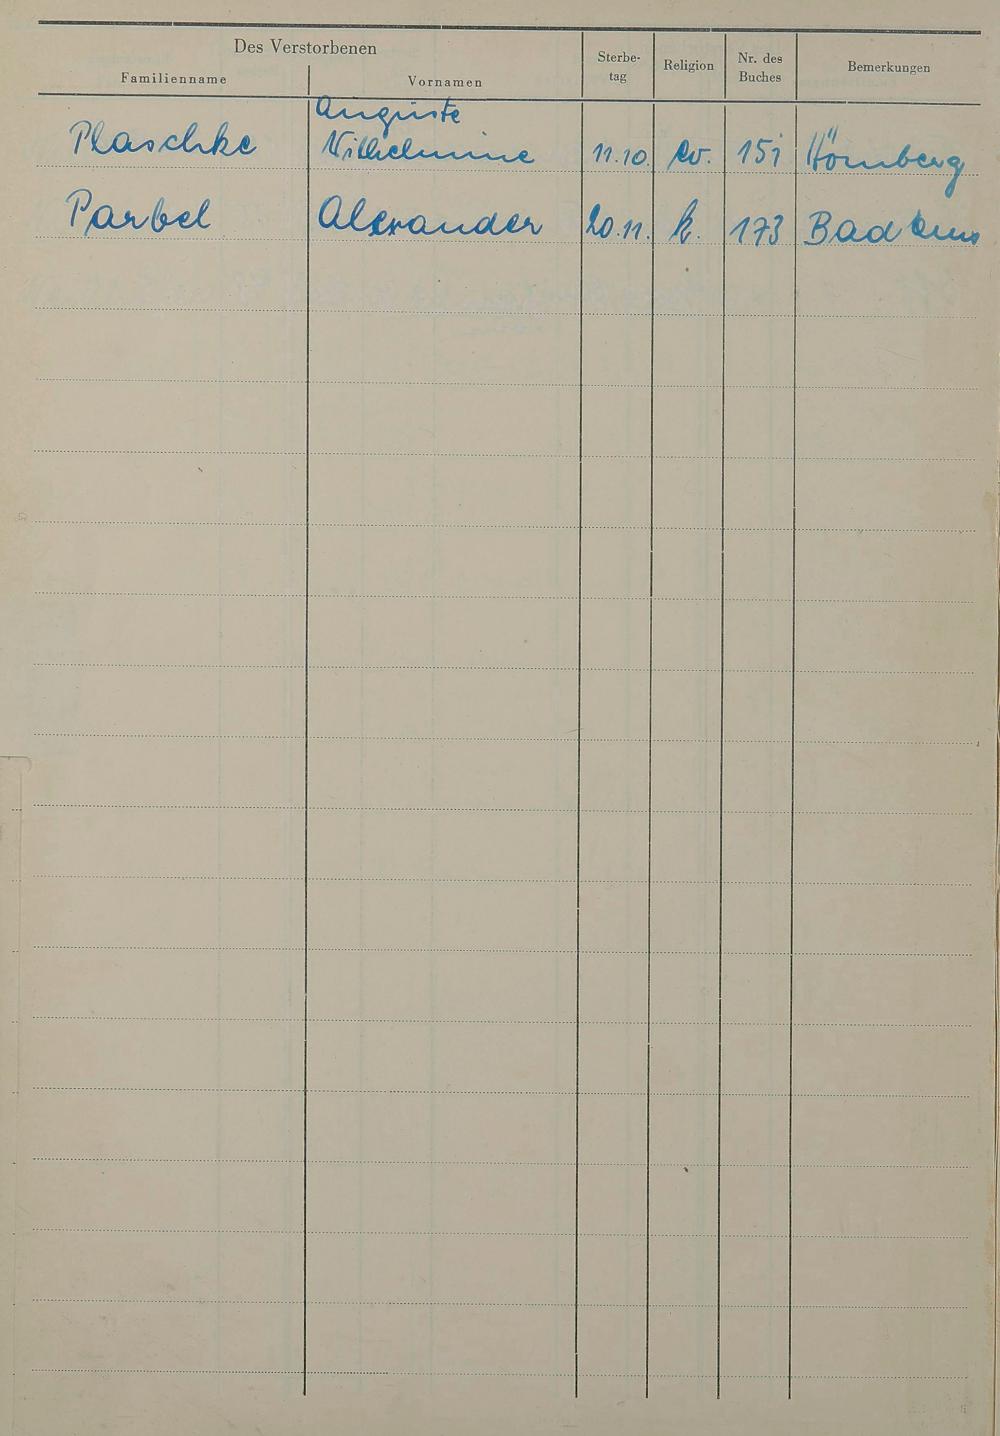 Des Verstorbenen
Familienname Vornamen Sterbe-tag Religion Nr. des Buches Bemerkungen
Auguste
Plaschke Wilhelmine 11.10. ev. 151 Hömberg
Parbel Alexander 20.11. k. 173 Bad Ems